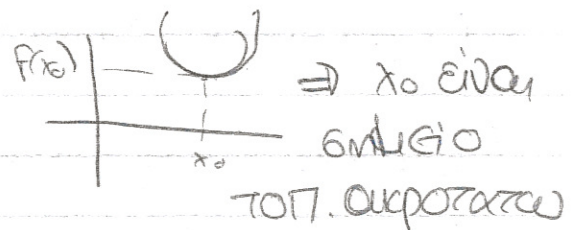 f(x₀)
⇒ x₀ είναι
x₀
σημείο
τοπ. ακροτάτου